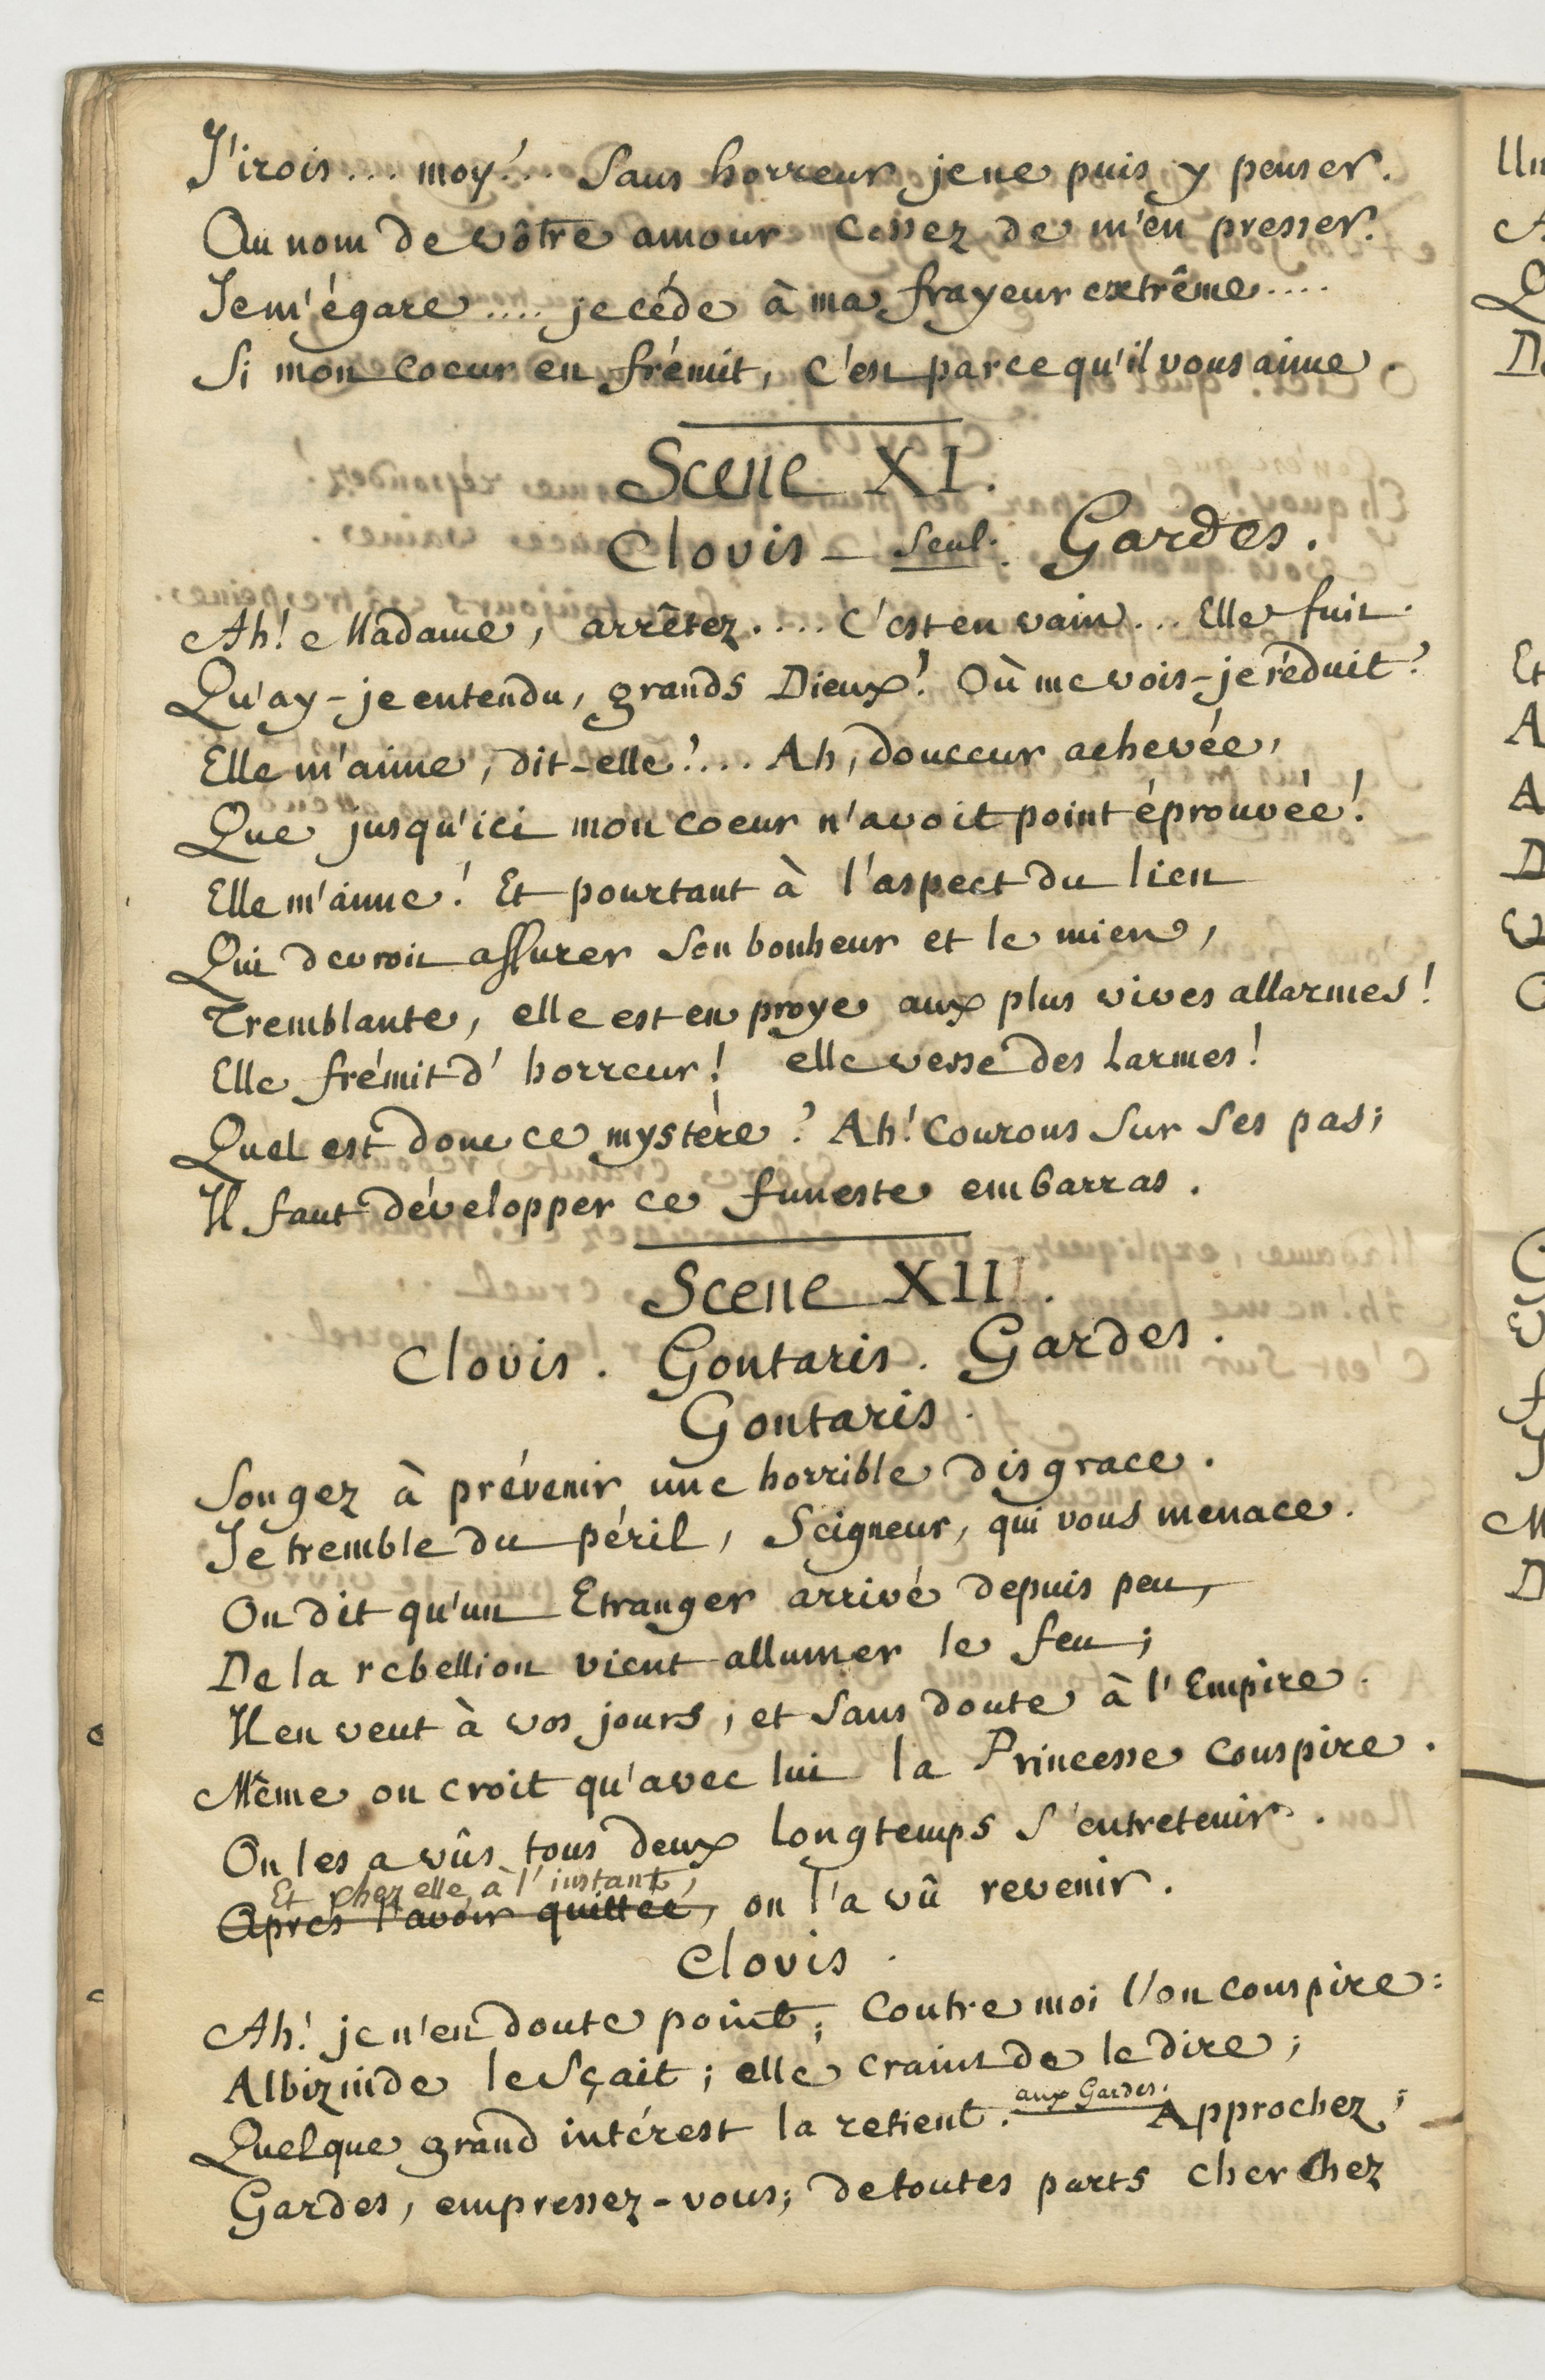 J'irois... moy!... Sans horreur je ne puis y penser.
Au nom de vôtre amour cessez de m'en presser.
Je m'égare.... je céde à ma frayeur extrême....
Si mon coeur en frémit, c'est parce qu'il vous aime.
Scene XI.
Clovis - seul. Gardes.
Ah! Madame, arrêtez.... C'est en vain... Elle fuit.
Qu'ay-je entendu, grands Dieux! Où me vois-je réduit?
Elle m'aime, dit-elle!... Ah, douceur achevée,
Que jusqu'ici mon coeur n'avoit point éprouvée!
Elle m'aime! Et pourtant à l'aspect du lien
Qui devroit assurer son bonheur et le mien,
Tremblante, elle est en proye aux plus vives allarmes!
Elle frémit d'horreur! elle verse des larmes!
Quel est donc ce mystère? Ah! Courons sur ses pas;
Il faut développer ce funeste embarras.
Scene XII.
Clovis. Gontaris. Gardes.
Gontaris.
Songez à prévenir une horrible disgrace.
Je tremble du péril, Seigneur, qui vous menace.
On dit qu'un Etranger arrivé depuis peu,
De la rebellion vient allumer le feu;
Il en veut à vos jours; et sans doute à l'Empire.
Même on croit qu'avec lui la Princesse conspire.
On les a vûs tous deux longtemps s'entretenir.
Et chez elle, à l'instant,
Apres l'avoir quittée, on l'a vû revenir.
Clovis.
Ah! je n'en doute point; Contre moi l'on conspire:
Albizinde le sçait; elle craint de le dire;
Quelque grand intérest la retient. aux Gardes. Approchez;
Gardes, empressez-vous; de toutes parts cherchez